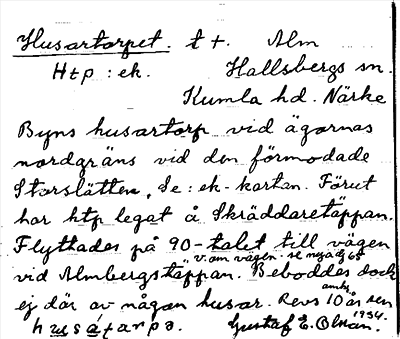 Husartorpet. t +. Alm
Htp : ek. Hallsbergs sn.
Kumla hd. Närke
Byns husartorp vid ägornas
nordgräns vid den förmodade
Storslätten, Se: ek-kartan. Förut
har htp legat å Skräddaretäppan.
Flyttades på 90-talet till vägen
v. om vägen. se
vid Almbergstäppan. Beboddes dock
ej där av någon husar. Revs 10 år sen
1934.
husátarpə. Gustaf E. Olsson.